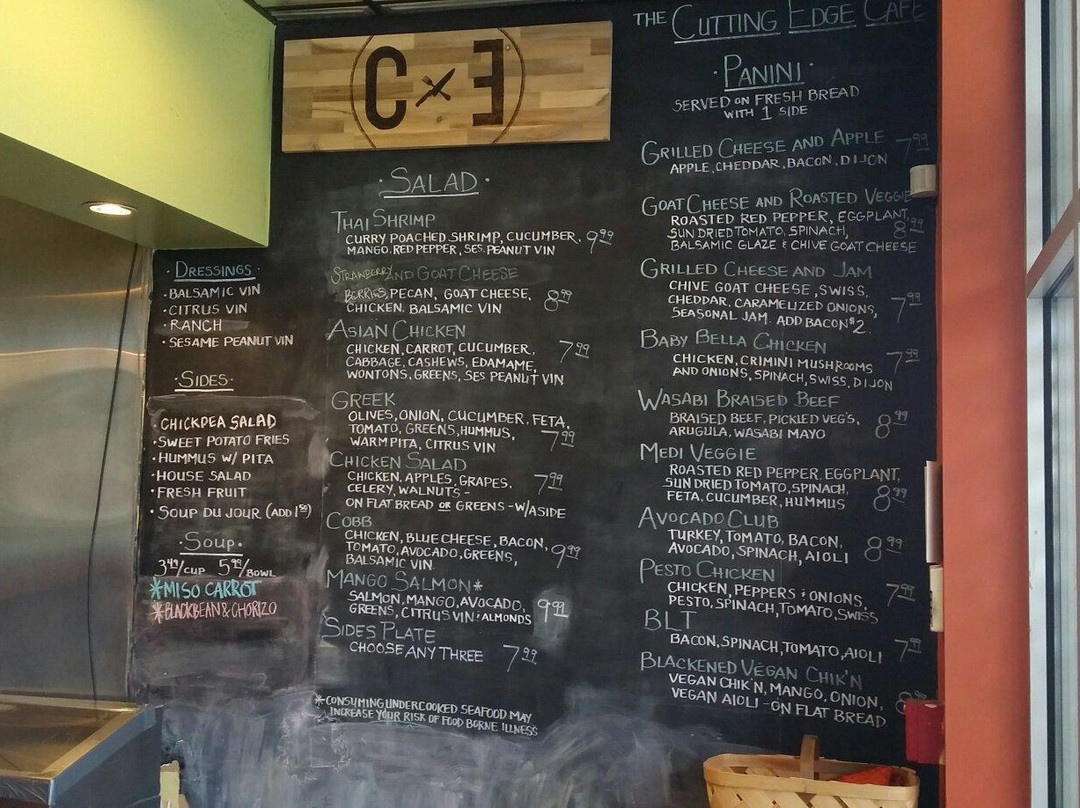 C E
DRESSINGS
· BALSAMIC VIN
· CITRUS VIN
· RANCH
· SESAME PEANUT VIN
· SIDES ·
· CHICKPEA SALAD
· SWEET POTATO FRIES
· HUMMUS W/ PITA
· HOUSE SALAD
· FRESH FRUIT
· SOUP DU JOUR (ADD 1.50)
· SOUP ·
3.49/CUP 5.99/BOWL
*MISO CARROT
*BLACKBEAN & CHORIZO
· SALAD ·
THAI SHRIMP
CURRY POACHED SHRIMP, CUCUMBER, 9.99
MANGO, RED PEPPER, SES. PEANUT VIN
STRAWBERRY AND GOAT CHEESE
BERRIES, PECAN, GOAT CHEESE, 8.99
CHICKEN, BALSAMIC VIN
ASIAN CHICKEN
CHICKEN, CARROT, CUCUMBER, 7.99
CABBAGE, CASHEWS, EDAMAME,
WONTONS, GREENS, SES PEANUT VIN
GREEK
OLIVES, ONION, CUCUMBER, FETA,
TOMATO, GREENS, HUMMUS, 7.99
WARM PITA, CITRUS VIN
CHICKEN SALAD
CHICKEN, APPLES, GRAPES, 7.99
CELERY, WALNUTS -
ON FLAT BREAD OR GREENS - W/A SIDE
COBB
CHICKEN, BLUE CHEESE, BACON, 9.99
TOMATO, AVOCADO, GREENS,
BALSAMIC VIN.
MANGO SALMON*
SALMON, MANGO, AVOCADO, 9.99
GREENS, CITRUS VIN + ALMONDS
SIDES PLATE
CHOOSE ANY THREE 7.99
*CONSUMING UNDERCOOKED SEAFOOD MAY
INCREASE YOUR RISK OF FOOD BORNE ILLNESS
THE CUTTING EDGE CAFE
· PANINI ·
SERVED ON FRESH BREAD
WITH 1 SIDE
GRILLED CHEESE AND APPLE 7.99
APPLE, CHEDDAR, BACON, DIJON
GOAT CHEESE AND ROASTED VEGGIE
ROASTED RED PEPPER, EGGPLANT,
SUN DRIED TOMATO, SPINACH, 8.99
BALSAMIC GLAZE & CHIVE GOAT CHEESE
GRILLED CHEESE AND JAM
CHIVE GOAT CHEESE, SWISS,
CHEDDAR, CARAMELIZED ONIONS, 7.99
SEASONAL JAM. ADD BACON $2
BABY BELLA CHICKEN
CHICKEN, CRIMINI MUSHROOMS 7.99
AND ONIONS, SPINACH, SWISS, DIJON
WASABI BRAISED BEEF
BRAISED BEEF, PICKLED VEG'S, 8.99
ARUGULA, WASABI MAYO
MEDI VEGGIE
ROASTED RED PEPPER, EGGPLANT,
SUN DRIED TOMATO, SPINACH, 8.99
FETA, CUCUMBER, HUMMUS
AVOCADO CLUB
TURKEY, TOMATO, BACON, 8.99
AVOCADO, SPINACH, AIOLI
PESTO CHICKEN
CHICKEN, PEPPERS & ONIONS, 7.99
PESTO, SPINACH, TOMATO, SWISS
BLT
BACON, SPINACH, TOMATO, AIOLI 7.99
BLACKENED VEGAN CHIK'N
VEGAN CHIK'N, MANGO, ONION,
VEGAN AIOLI - ON FLAT BREAD